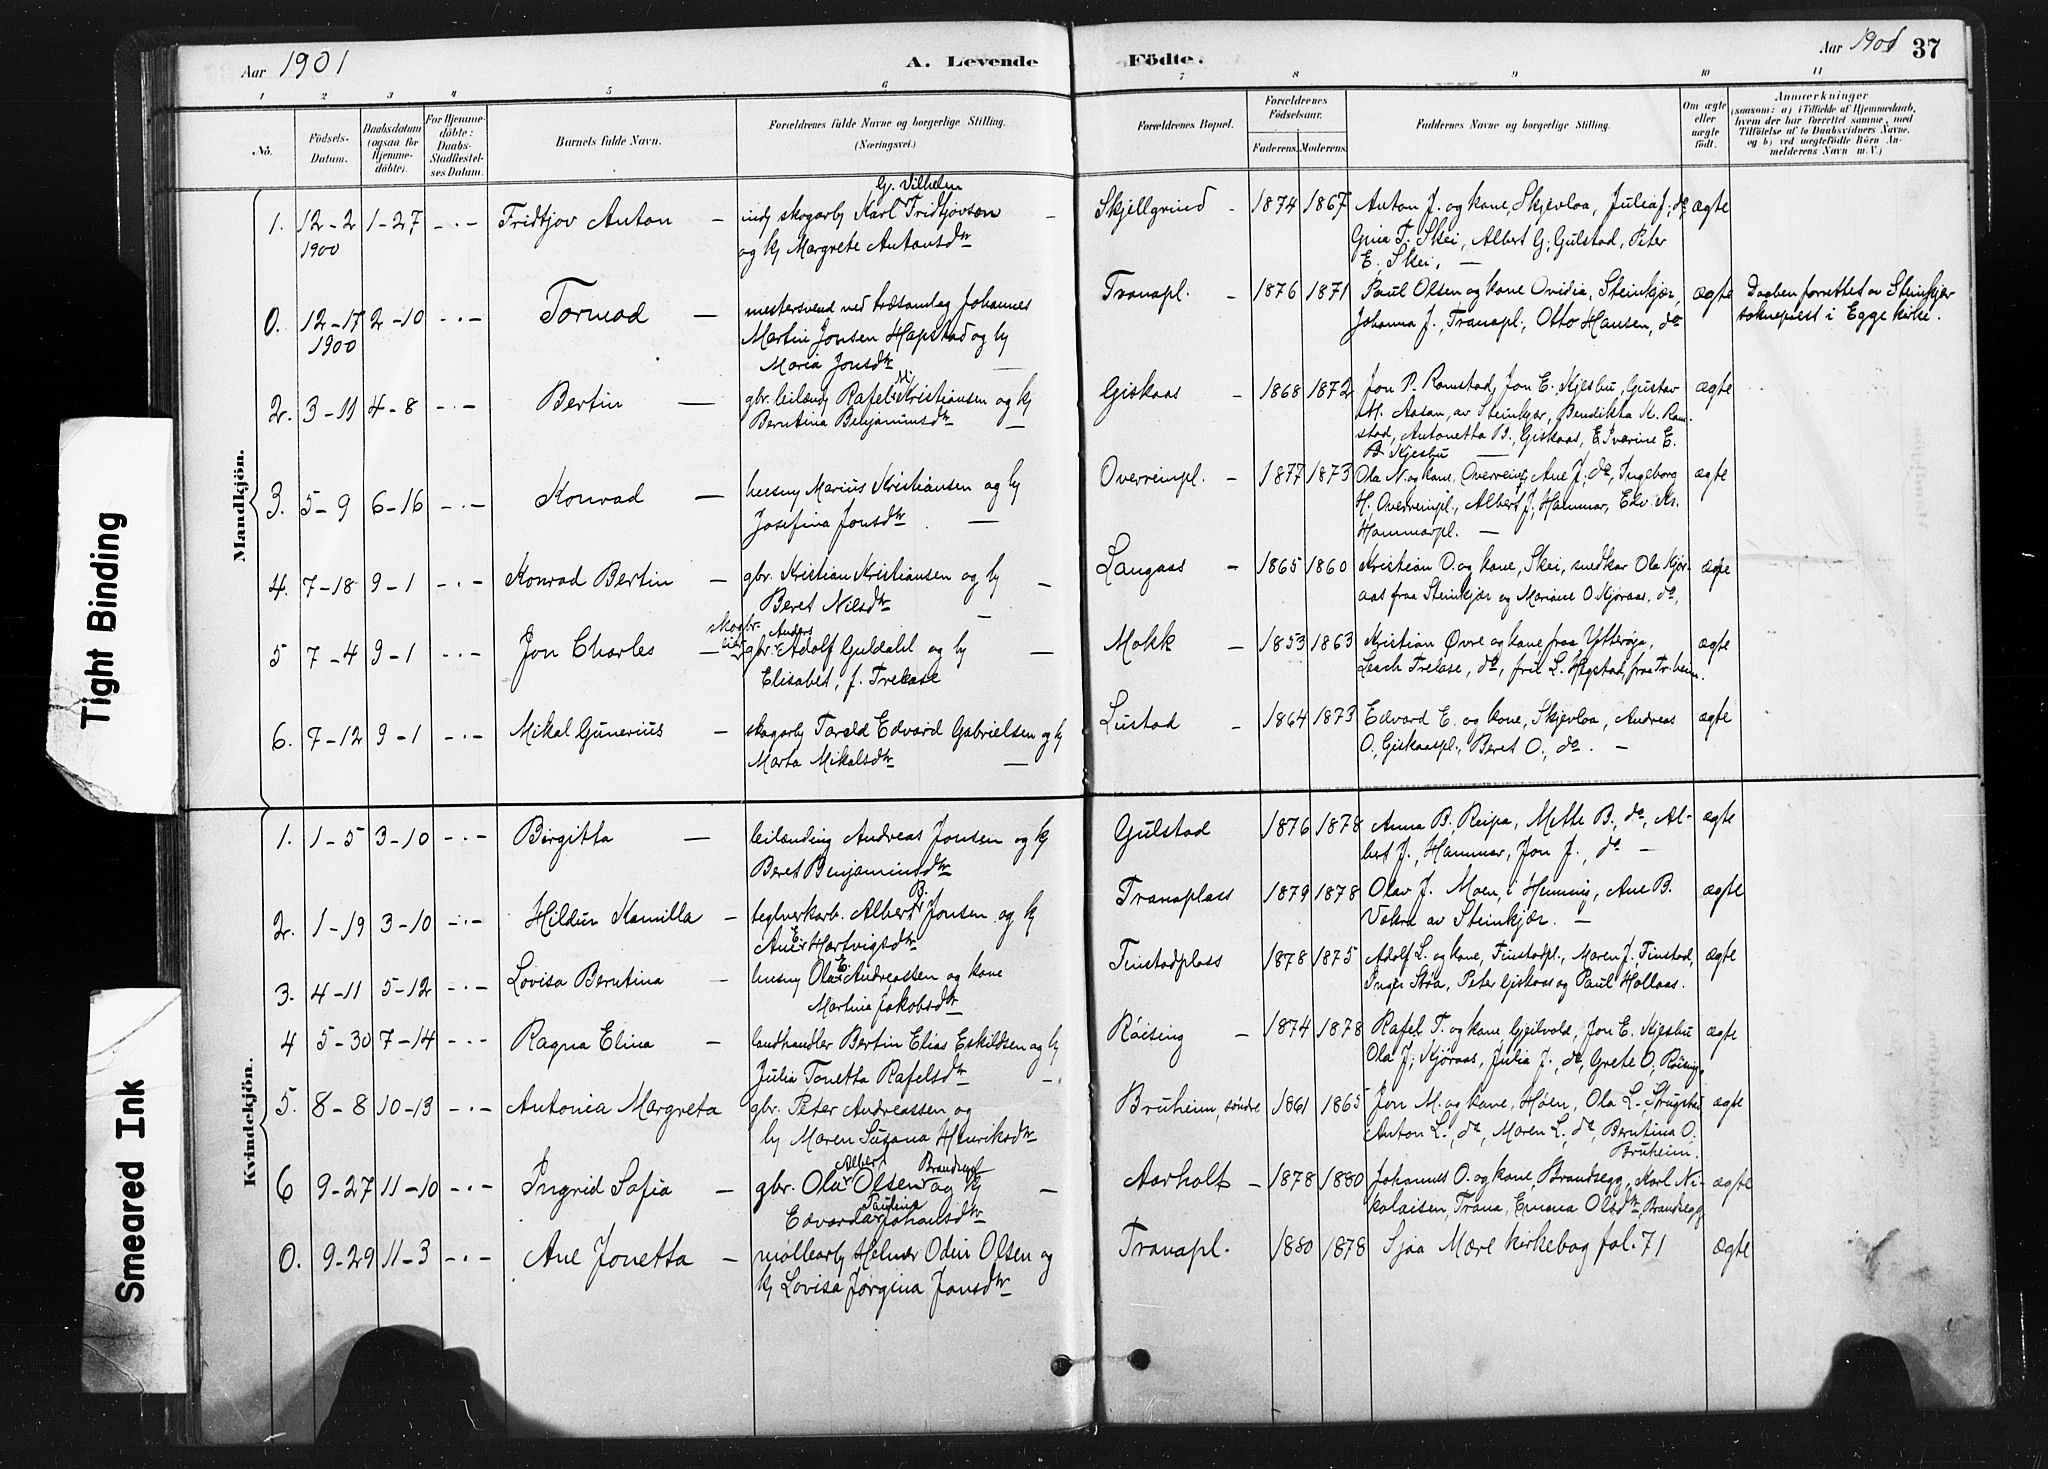 Aar 1901
A. Levende Födte.
Aar 1901 37
1 2 3 4 5 6 7 8 9 10 11
No.
Födsels-Datum.
Daabsdatum (ogsaa for Hjemmedöbte).
For Hjemmedöbte: Daabs-Stadfæstelses Datum.
Barnets fulde Navn.
Forældrenes fulde Navne og borgerlige Stilling. (Næringsvei.)
Forældrenes Bopæl.
Forældrenes Födselsaar.
Faderens. Moderens.
Faddernes Navne og borgerlige Stilling.
Om ægte eller uægte födt.
Anmærkninger
(saasom: a) i Tilfælde af Hjemmedaab, hvem der har forrettet samme, med Tilföielse af to Daabsvidners Navne. og b) ved uægtefödte Börn Anmelderens Navn m. V.)
Mandkjön.
1. 12-2 1900 1-27 -.- Fridtjov Anton –
G. Vilhelm
indj skogarb Karl Fridtjovson
og kj Margrete Antonsdtr
Skjellgrind - 1874 1867
Anton J. og kone, Skjevloa, Julia J., do ægte
Gina T. Skei, Albert G. Gulstad, Peter
E. Skei. –
0. 12-17 1900 2-10 -.- Tormod –
mestersvend ved træsamlag Johannes
Martin Jonsen Hapstad og kj
Maria Jonsdtr –
Tranapl. - 1876 1871
Paul Olsen og kone Ovidia, Steinkjær, ægte
Johanna J., Tranapl., Otto Hansen, do
Daaben forrettet av Steinkjær
soknepræst i Egge kirke.
2. 3-11 4-8 -.- Bertin –
M.
gbr. leilænd Rafel Kristiansen og kj
Berntina Benjaminsdtr –
Giskaas - 1868 1872
Jon P. Ramstad, Jon E. Kjesbu, Gustav ægte
M. Aasan, av Steinkjær, Bendikta K. Ram-
stad, Antonetta B., Giskaas, E. Sverine E.
B. Kjesbu –
3. 5-9 6-16 -.- Konrad –
husmj Marius Kristiansen og kj
Josefina Jonsdtr. –
Overreinpl. - 1877 1873
Ola N. og kone, Overrein, Ane J., do, Ingeborg ægte
H., Overreinpl., Albert J., Hammer, Edv. Kr.
Hammerpl. –
4. 7-18 9-1 -.- Konrad Bertin –
gbr. Kristian Kristiansen og kj –
Beret Nilsdtr –
Langaas - 1865 1860
Kristian O. og kone, Skei, snedkar Ola Kjør- ægte
aas fraa Steinkjær og Mariane O. Kjøraas, do,
5 7-4 9-1 -.- Jon Charles –
skogbr. Anders
gbr. Adolf Guldahl og kj –
Elisabet, f. Trelase
Mokk - 1853 1863
Kristian Øvre og kone, fraa Ytterøya, ægte
Leach Trelase, do, frk L. Hegstad, fraa Tr.heim.
6. 7-12 9-1 -.- Mikal Gunerius –
skogarb Tarald Edvard Gabrielsen og kj
Marta Mikalsdtr –
Lustad - 1864 1873
Edvard E. og kone, Skjevloa, Andreas ægte
O., Giskaaspl., Beret O., do. –
Kvindekjön.
1. 1-5 3-10 -.- Birgitta –
leilænding Andreas Jonsen og kj
Beret Benjaminsdtr
Gulstad 1876 1878
Anna B. Reipa, Mette B., do, Al- ægte
bert J., Hammer, Jon J., do –
2. 1-19 3-10 -.- Hildur Kamilla –
B.
teglverkarb. Albert Jonsen og kj
Ane E. Hartvigsdtr
Tranaplass 1879 1878
Olav J. Moen, i Henning, Ane B. ægte
Vekra av Steinkjær. –
3. 4-11 5-12 -.- Lovisa Berntina –
husmj Ola E. Andreassen og kone
Martina Jakobsdtr
Tinstadplass 1878 1875
Adolf L. og kone, Finstadpl., Maren J. Finstad, ægte
Inger Støa, Peter Giskaas og Paul Hollaas.
4 5-30 7-14 -.- Ragna Elina –
landhandler Bertin Elias Eskildsen og kj
Julia Tonetta Rafelsdtr –
Røising - 1874 1878
Rafel T. og kone, Gjeilvold, Jon E. Kjesbu ægte
Ola J., Kjøraas, Julia J., do, Grete O. Røising.
5. 8-8 10-13 -.- Antonia Margreta
gbr. Peter Andreassen og
kj Maren Susana Henriksdtr
Bruheim, søndre 1861 1865
Jon M. og kone, Høen, Ola L. Strugstad ægte
Anton L., do, Maren L., do, Berntina O.
Bruheim.
6 9-27 11-10 -.- Ingrid Sofia –
Albert Brandsegg
gbr. Ola Olsen og kj –
Paulina
Edvarda Johansdtr
Aarholt - 1878 1880
Johannes O. og kone, Brandsegg, Karl Ni- ægte
kolaisen, Trana, Emma Olsdtr, Brandsegg
0. 9-29 11-3 -.- Ane Jonetta –
møllearb Helmer Odin Olsen og
kj Lovisa Jørgina Jonsdtr
Tranapl. 1880 1878
Sjaa Mære kirkebog fol. 71 ægte
Tight Binding
Smeared Ink